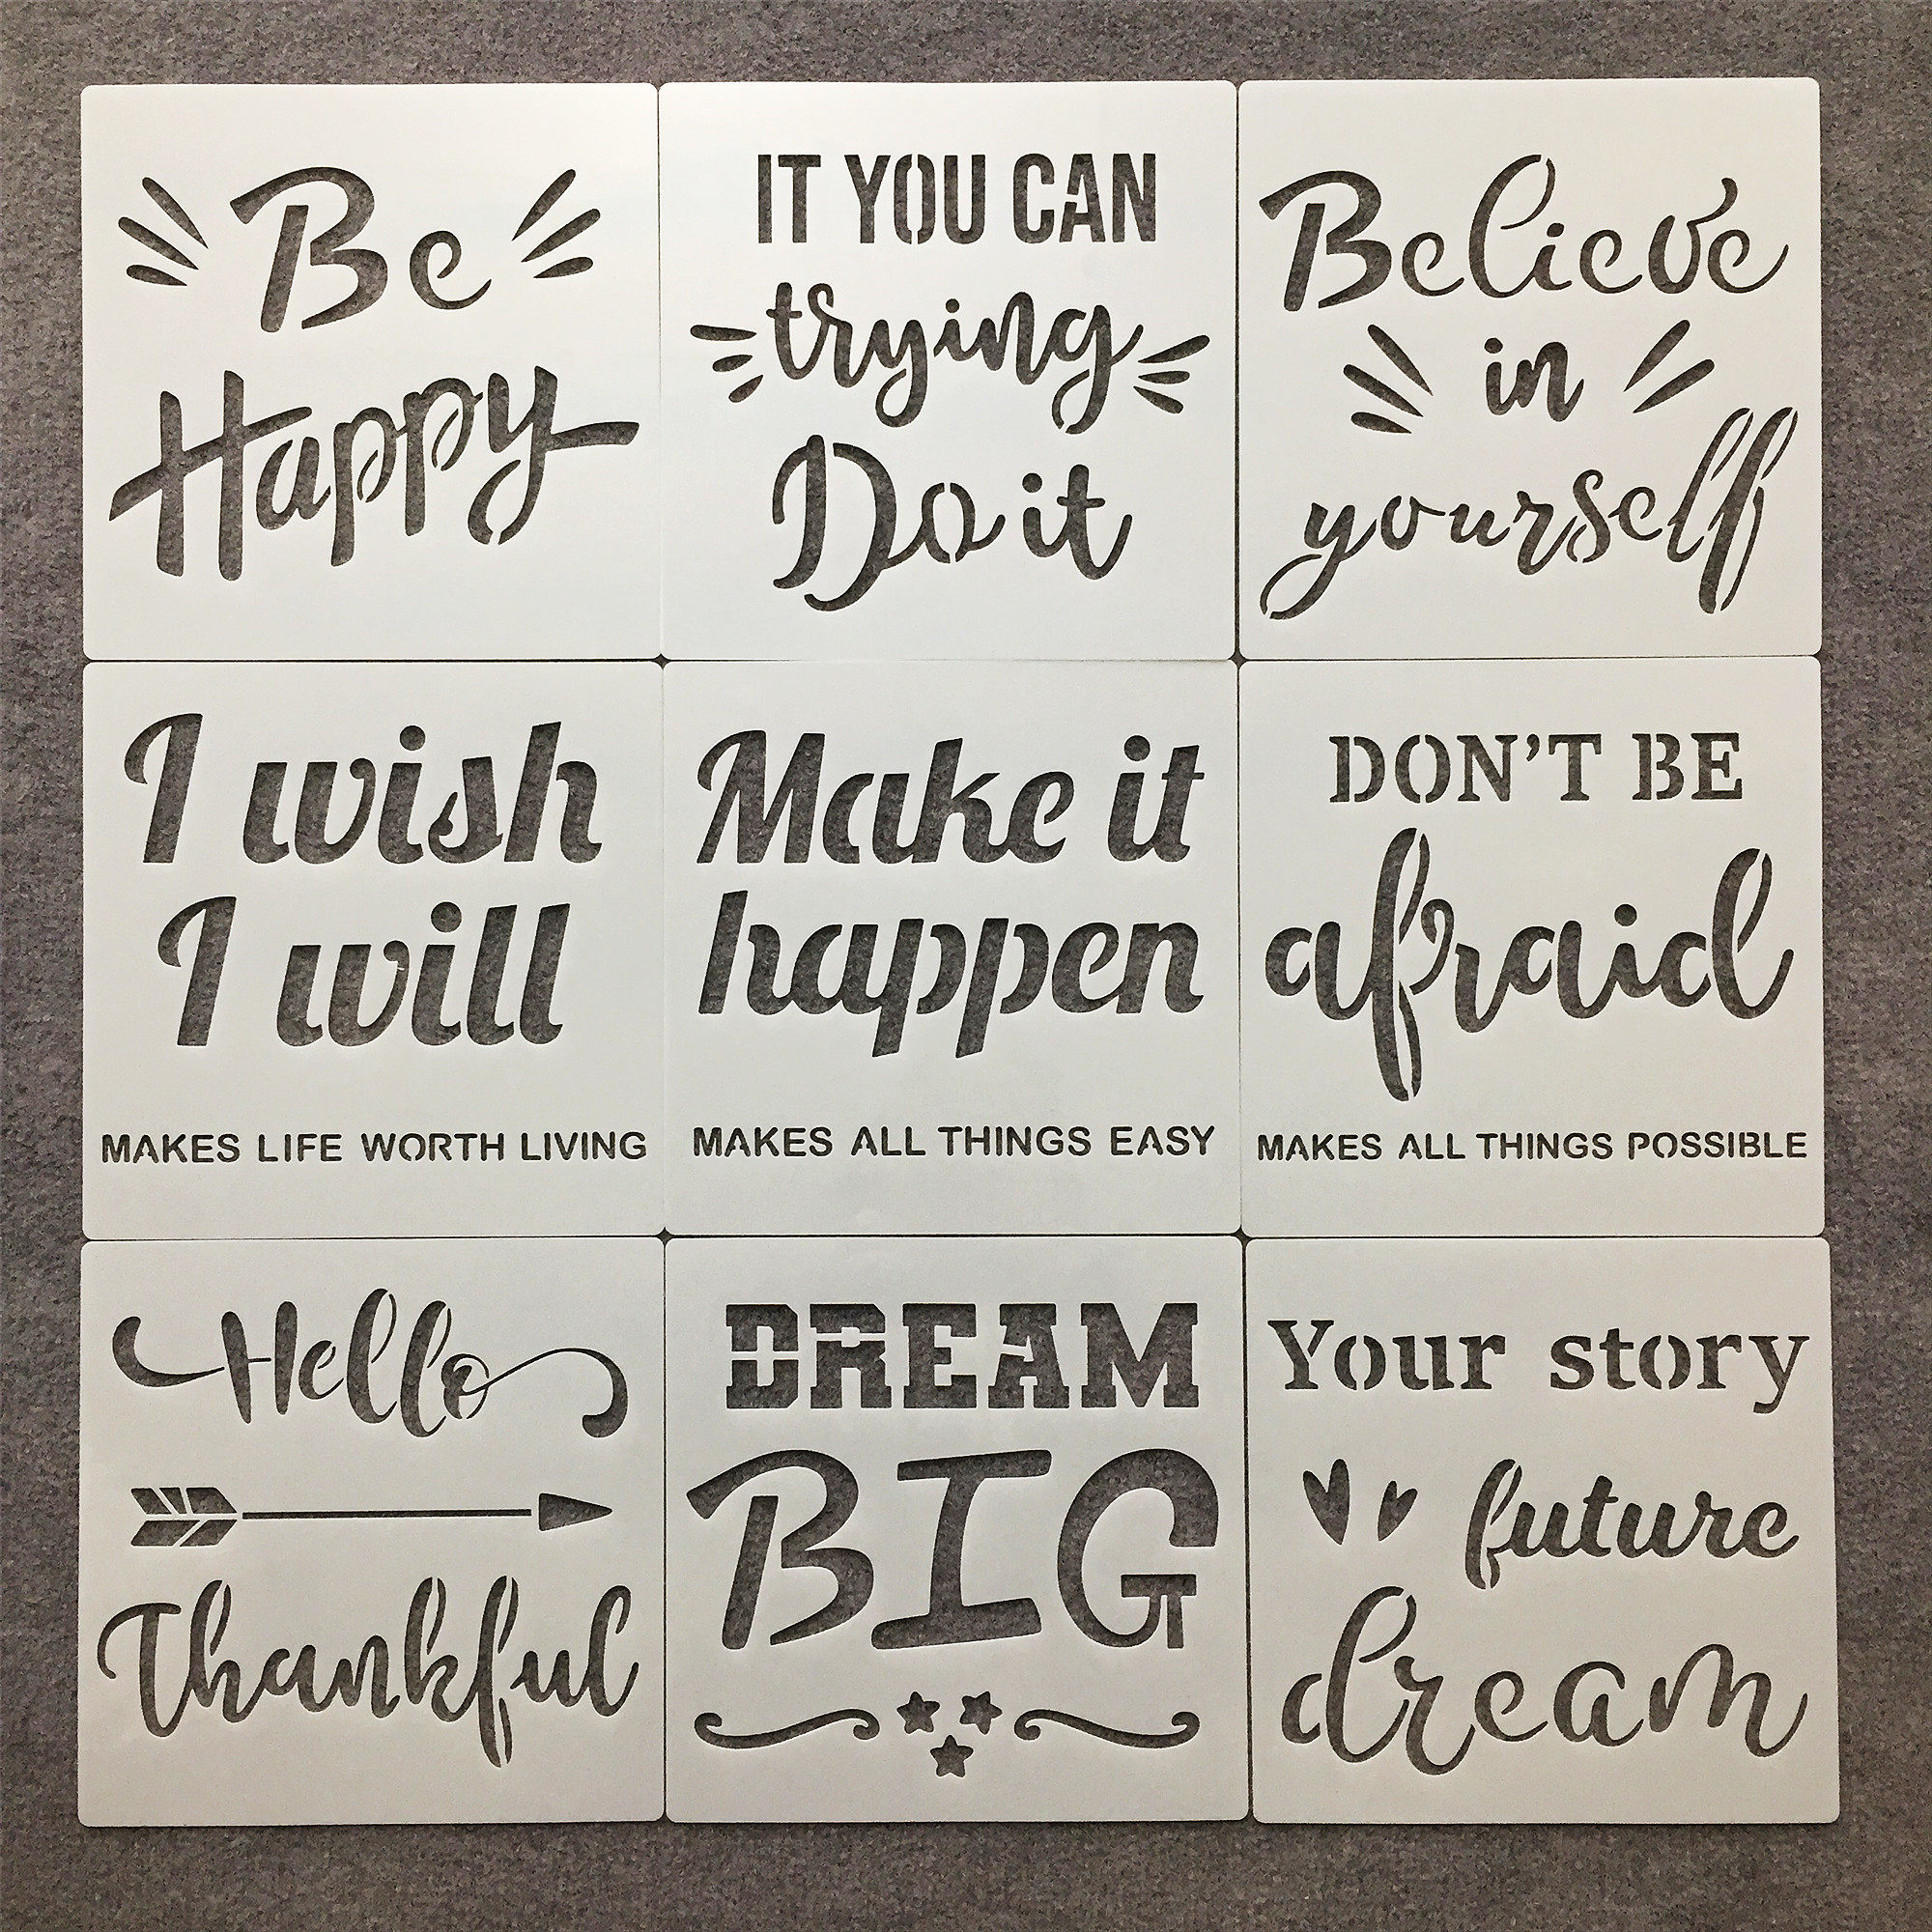 Be
Happy
IT YOU CAN
trying
Do it
Believe
in
yourself
I wish
I will
MAKES LIFE WORTH LIVING
Make it
happen
MAKES ALL THINGS EASY
DON'T BE
afraid
MAKES ALL THINGS POSSIBLE
Hello
Thankful
DREAM
BIG
Your story
future
dream